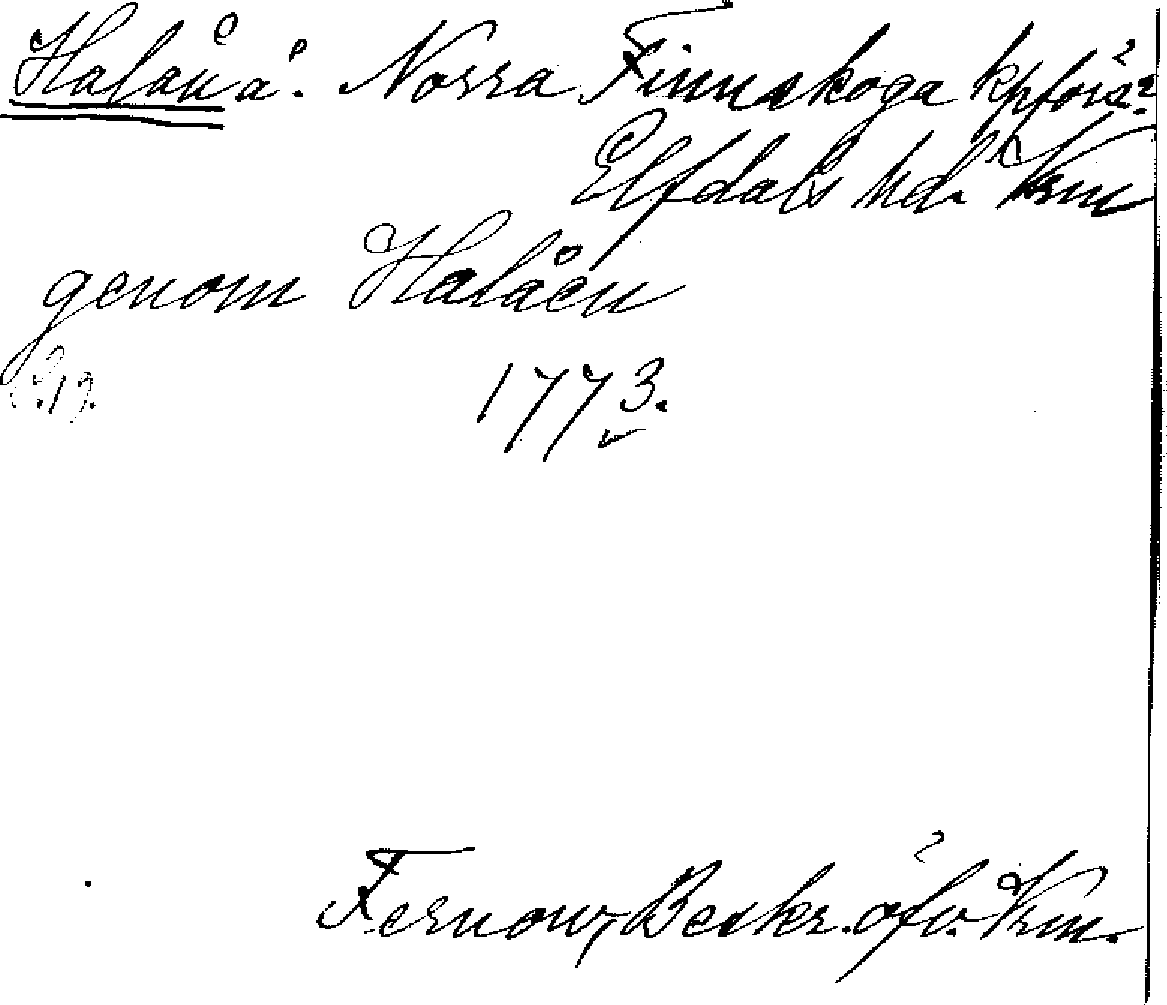 Halån å. Norra Finnskoga kpförs:
Elfdals hd. Vrm
genom Halåen
1773.
Fernow, Beskr. öfv. Vrm.